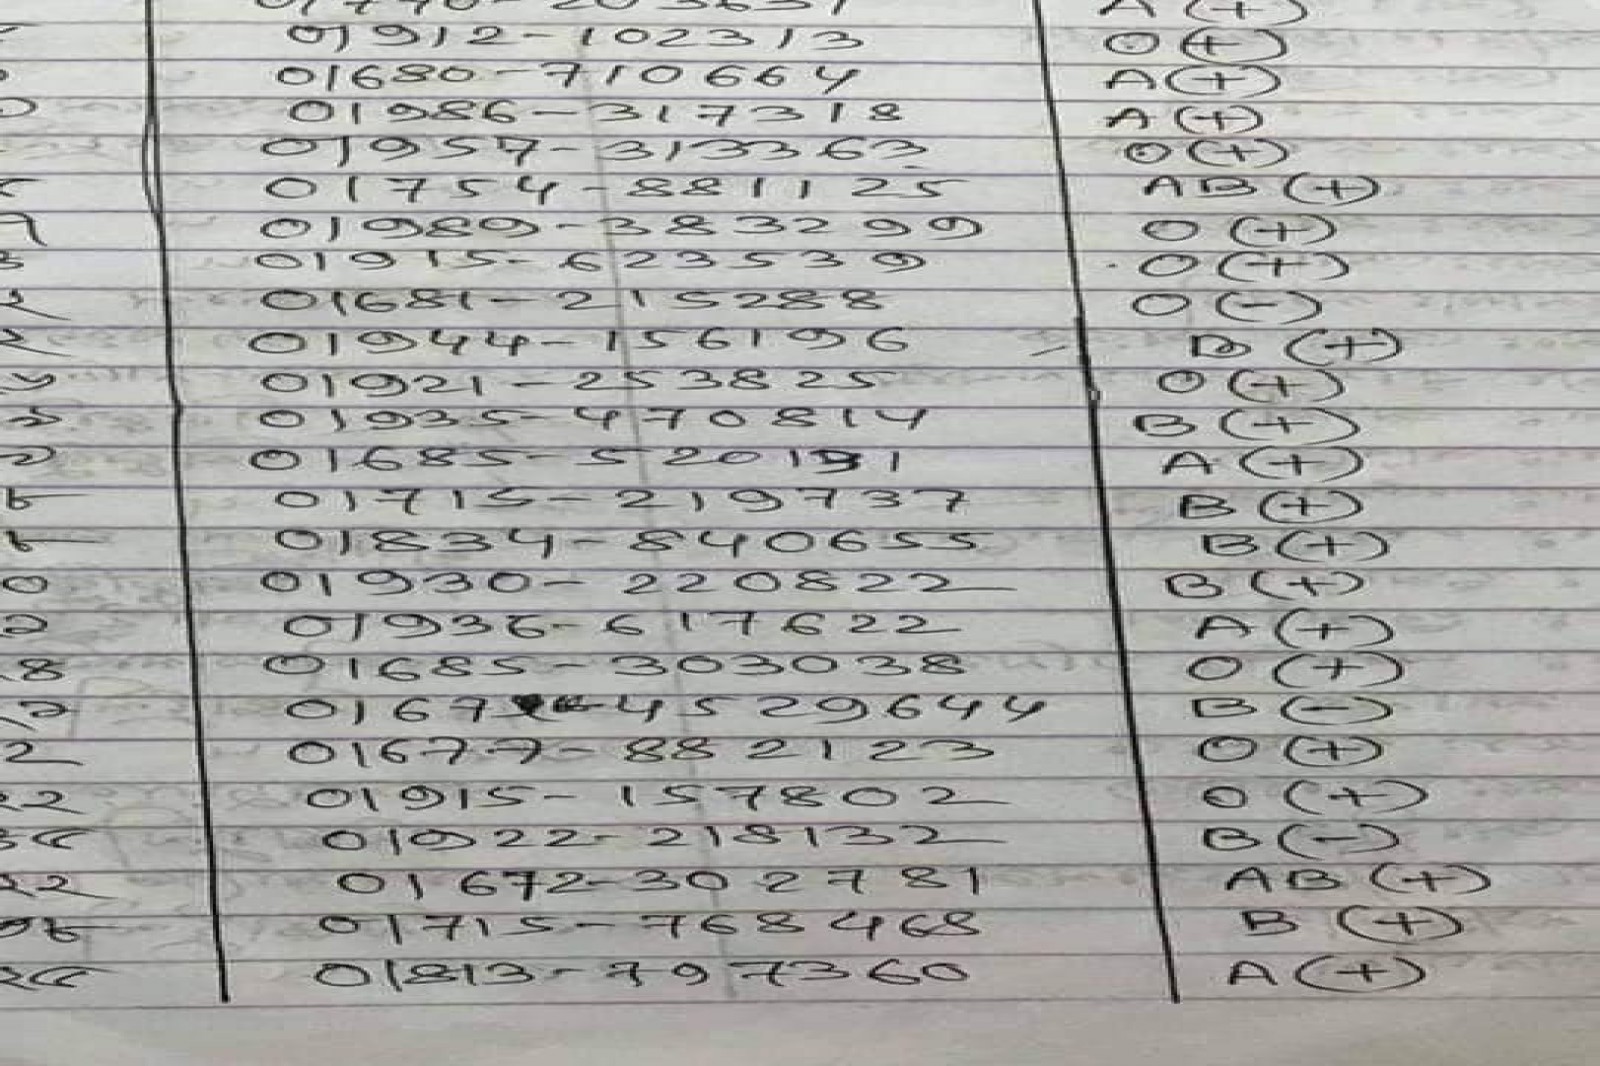 01912-102313 O (+)
01680-710664 A (+)
01986-317318 A (+)
01957-313363 O (+)
01754-881125 AB (+)
01989-383299 O (+)
01915-623539 O (+)
01681-215288 O (-)
01944-156196 B (+)
01921-253825 O (+)
01935-470814 B (+)
01685-520191 A (+)
01715-219737 B (+)
01834-840655 B (+)
01930-220822 B (+)
01936-617622 A (+)
01685-303038 O (+)
B (-)
01677-882123 O (+)
01915-157802 O (+)
01922-218132 B (-)
01672-302781 AB (+)
01715-768468 B (+)
01813-797360 A (+)